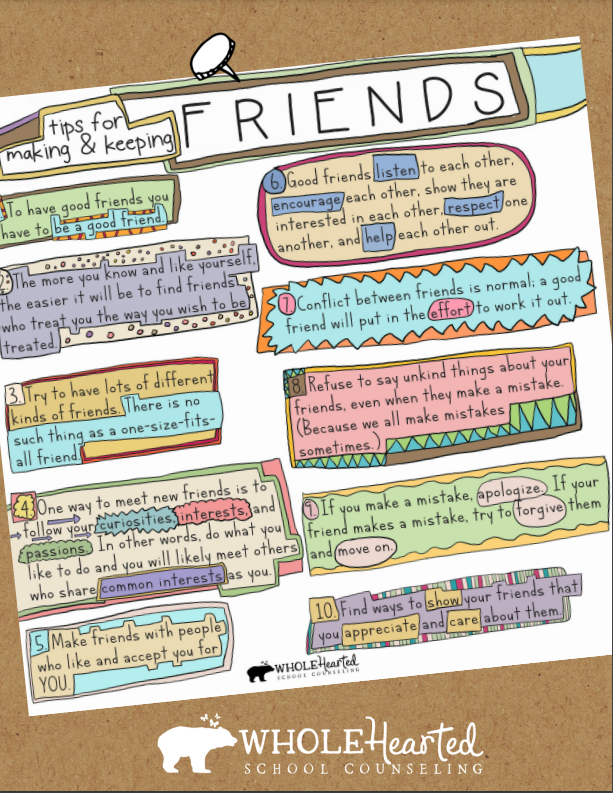 FRIENDS
tips for
making & keeping
To have good friends you
have to be a good friend.
The more you know and like yourself,
the easier it will be to find friends
who treat you the way you wish to be
treated.
3. Try to have lots of different
kinds of friends. There is no
such thing as a one-size-fits-
all friend.
4. One way to meet new friends is to
follow your curiosities, interests, and
passions. In other words, do what you
like to do and you will likely meet others
who share common interests as you.
5. Make friends with people
who like and accept you for
YOU.
6. Good friends listen to each other,
encourage each other, show they are
interested in each other, respect one
another, and help each other out.
7. Conflict between friends is normal; a good
friend will put in the effort to work it out.
8. Refuse to say unkind things about your
friends, even when they make a mistake.
(Because we all make mistakes
sometimes.)
9. If you make a mistake, apologize. If your
friend makes a mistake, try to forgive them
and move on.
10. Find ways to show your friends that
you appreciate and care about them.
WHOLEHearted
SCHOOL COUNSELING
WHOLEHearted
SCHOOL COUNSELING